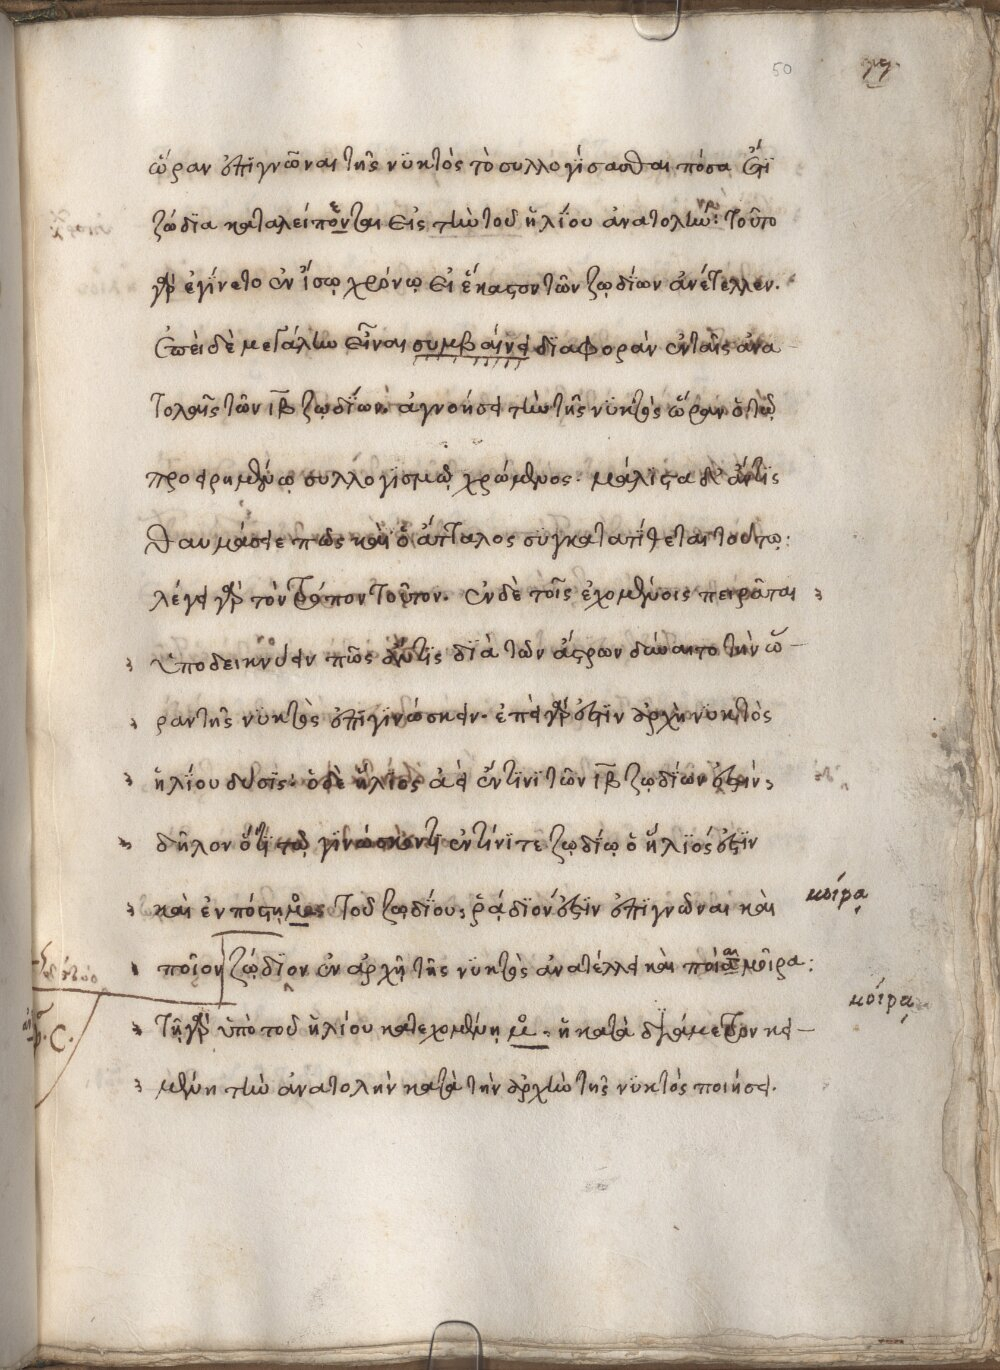 50
ὥραν ἐπιγνῶναι τῆς νϋκτὸς τὸ συλλογίσασθαι πόσα ἔτι
ζῴδϊα καταλείπονται εἰς τὴν τοῦ ἡλΐου ἀνατολήν: τοῦτο
γὰρ ἐγίνετο ἐν ἴσῳ χρόνῳ εἰ ἕκαστον τῶν ζῳδίων ἀνέτελλεν.
ἐπεὶ δὲ μεγάλην εἶναι συμβαίνει διαφορὰν ἐν ταῖς ἀνα
τολαῖς τῶν ιβ ζωδΐων ἀγνοήσει τὴν τῆς νϋκτὸς ὥραν ὁ τῷ
προειρημένῳ συλλογϊσμῷ χρώμενος. μάλϊστα δ' ἄν τϊς
θαυμάσειε πῶς καὶ ὁ ἄτταλος συγκατατίθεται τούτῳ:
λέγει γὰρ τὸν τρόπον τοῦτον. ἐν δὲ τοῖς ἐχομένοις πειρᾶται
ὑποδεικνύειν πῶς ἄν τϊς δϊὰ τῶν ἄστρων δύναιτο τὴν ὥ
ραν τῆς νϋκτὸς ἐπϊγινώσκειν. ἐπεὶ γὰρ ἐστϊν ἀρχὴ νυκτὸς
ἡλίου δύσϊς: ὁ δὲ ἥλϊος ἀεὶ ἔν τϊνϊ τῶν ιβ ζῳδίων ἐστὶν,
δῆλον ὅτϊ τῷ γϊνώσκοντϊ ἐν τίνϊ τε ζῳδίῳ ὁ ἥλϊός ἐστϊν
καὶ ἐν πόστῃ Μο τοῦ ζῳδΐου, ῥᾴδϊόν ἐστϊν ἐπϊγνῶναι καὶ
μοίρᾳ
ποῖον ζῴδϊον ἐν ἀρχῇ τῆς νϋκτὸς ἀνατέλλει καὶ ποία μοῖρα:
μοίρᾳ
τῇ γὰρ ὑπὸ τοῦ ἡλίου κατεχομένῃ Μο ἡ κατὰ δϊάμετρον κει
μένη τὴν ἀνατολὴν κατὰ τὴν ἀρχὴν τῆς νϋκτὸς ποιήσει.